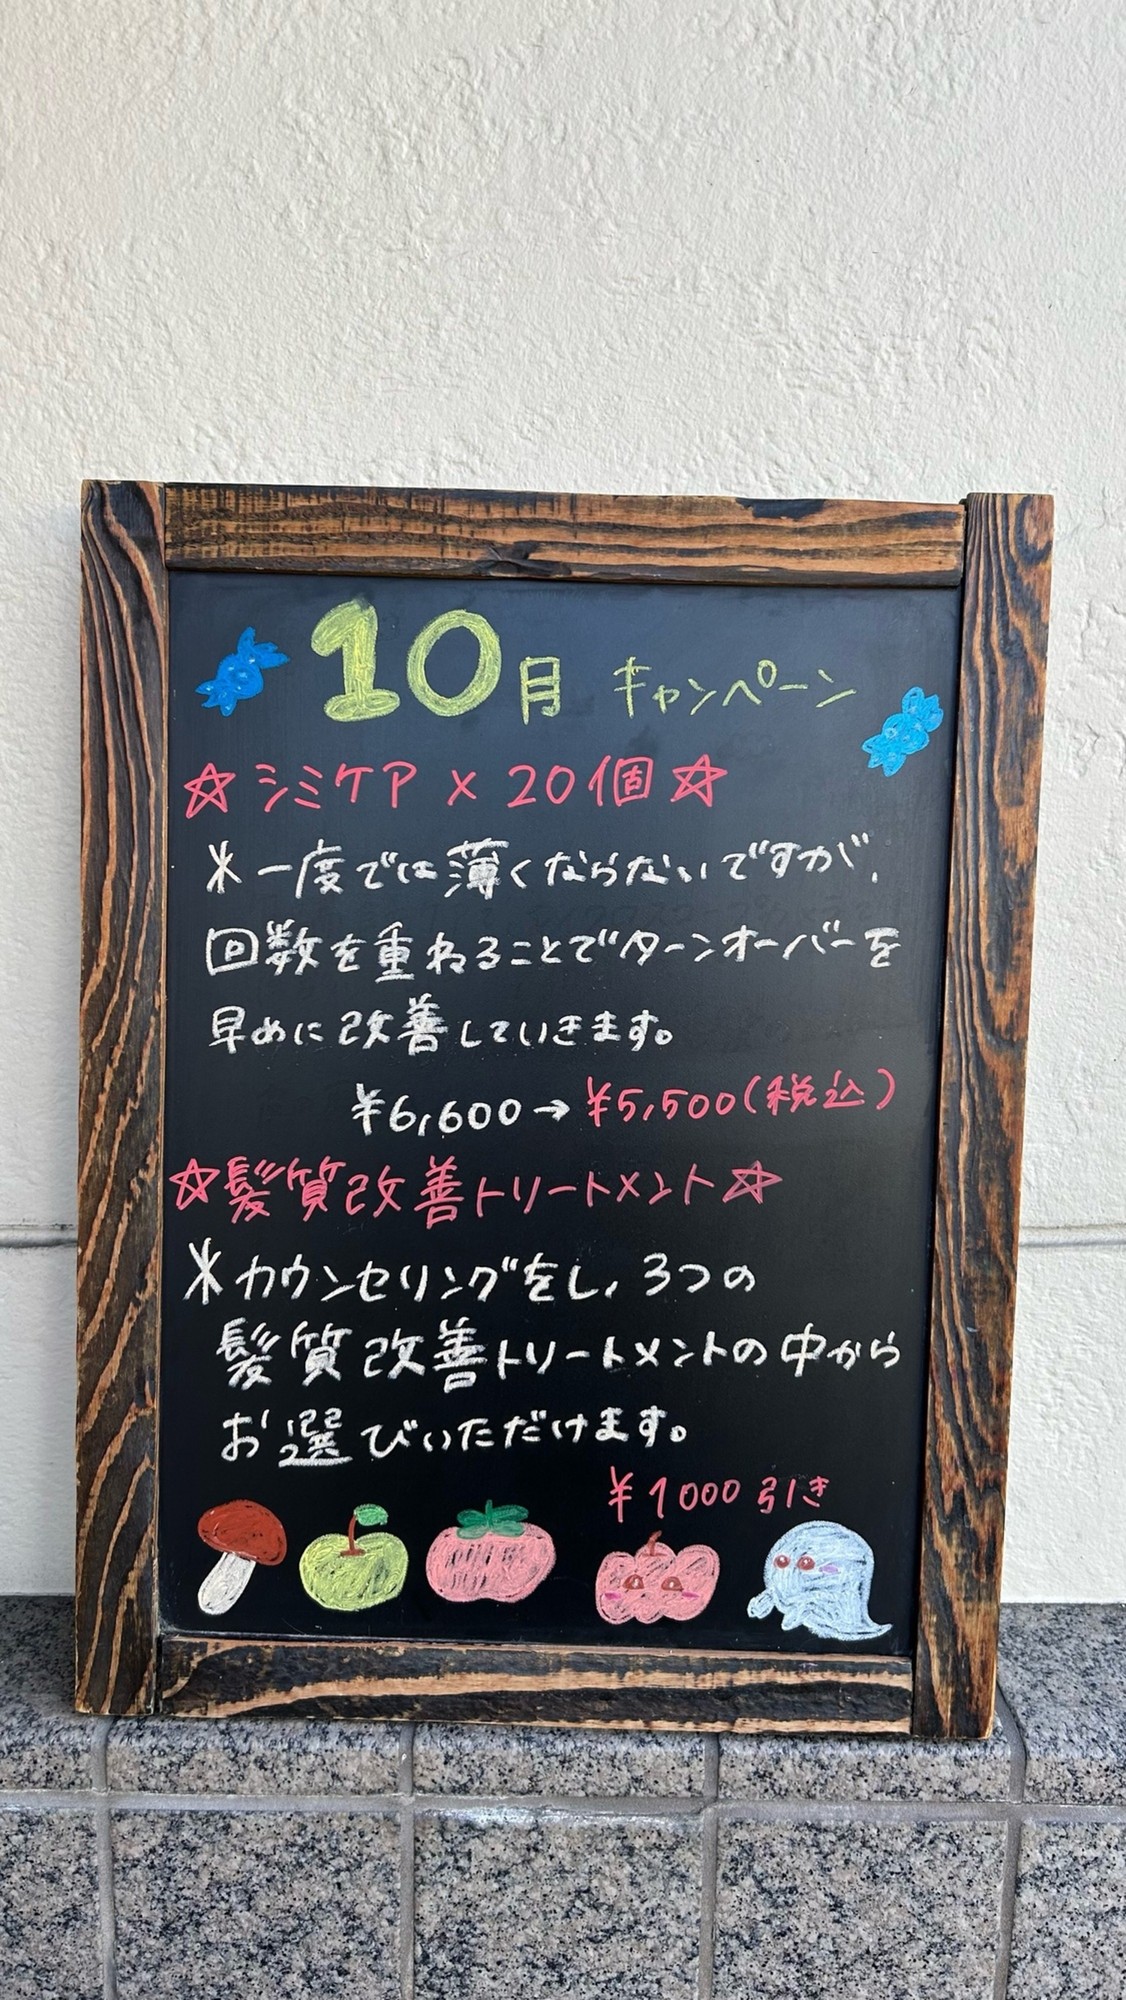 10月 キャンペーン
☆シミケア × 20個☆
※一度では薄くならないですが、
回数を重ねることでターンオーバーを
早めに改善していきます。
¥6,600→¥5,500(税込)
☆髪質改善トリートメント☆
※カウンセリングをし、3つの
髪質改善トリートメントの中から
お選びいただけます。
¥1000引き